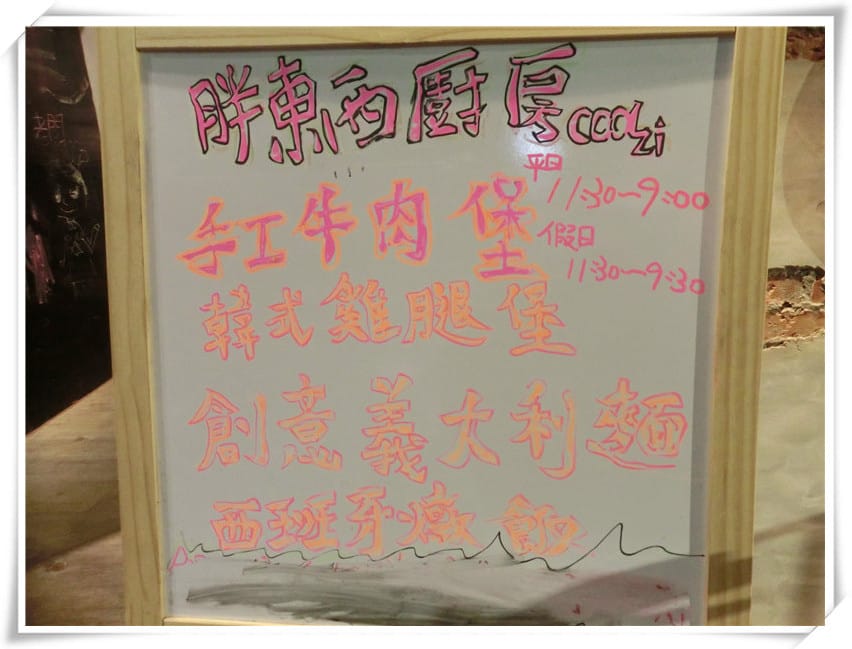 胖東西廚房
平日
11:30~9:00
手工牛肉堡
假日
11:30~9:30
韓式雞腿堡
創意義大利麵
西班牙燉飯